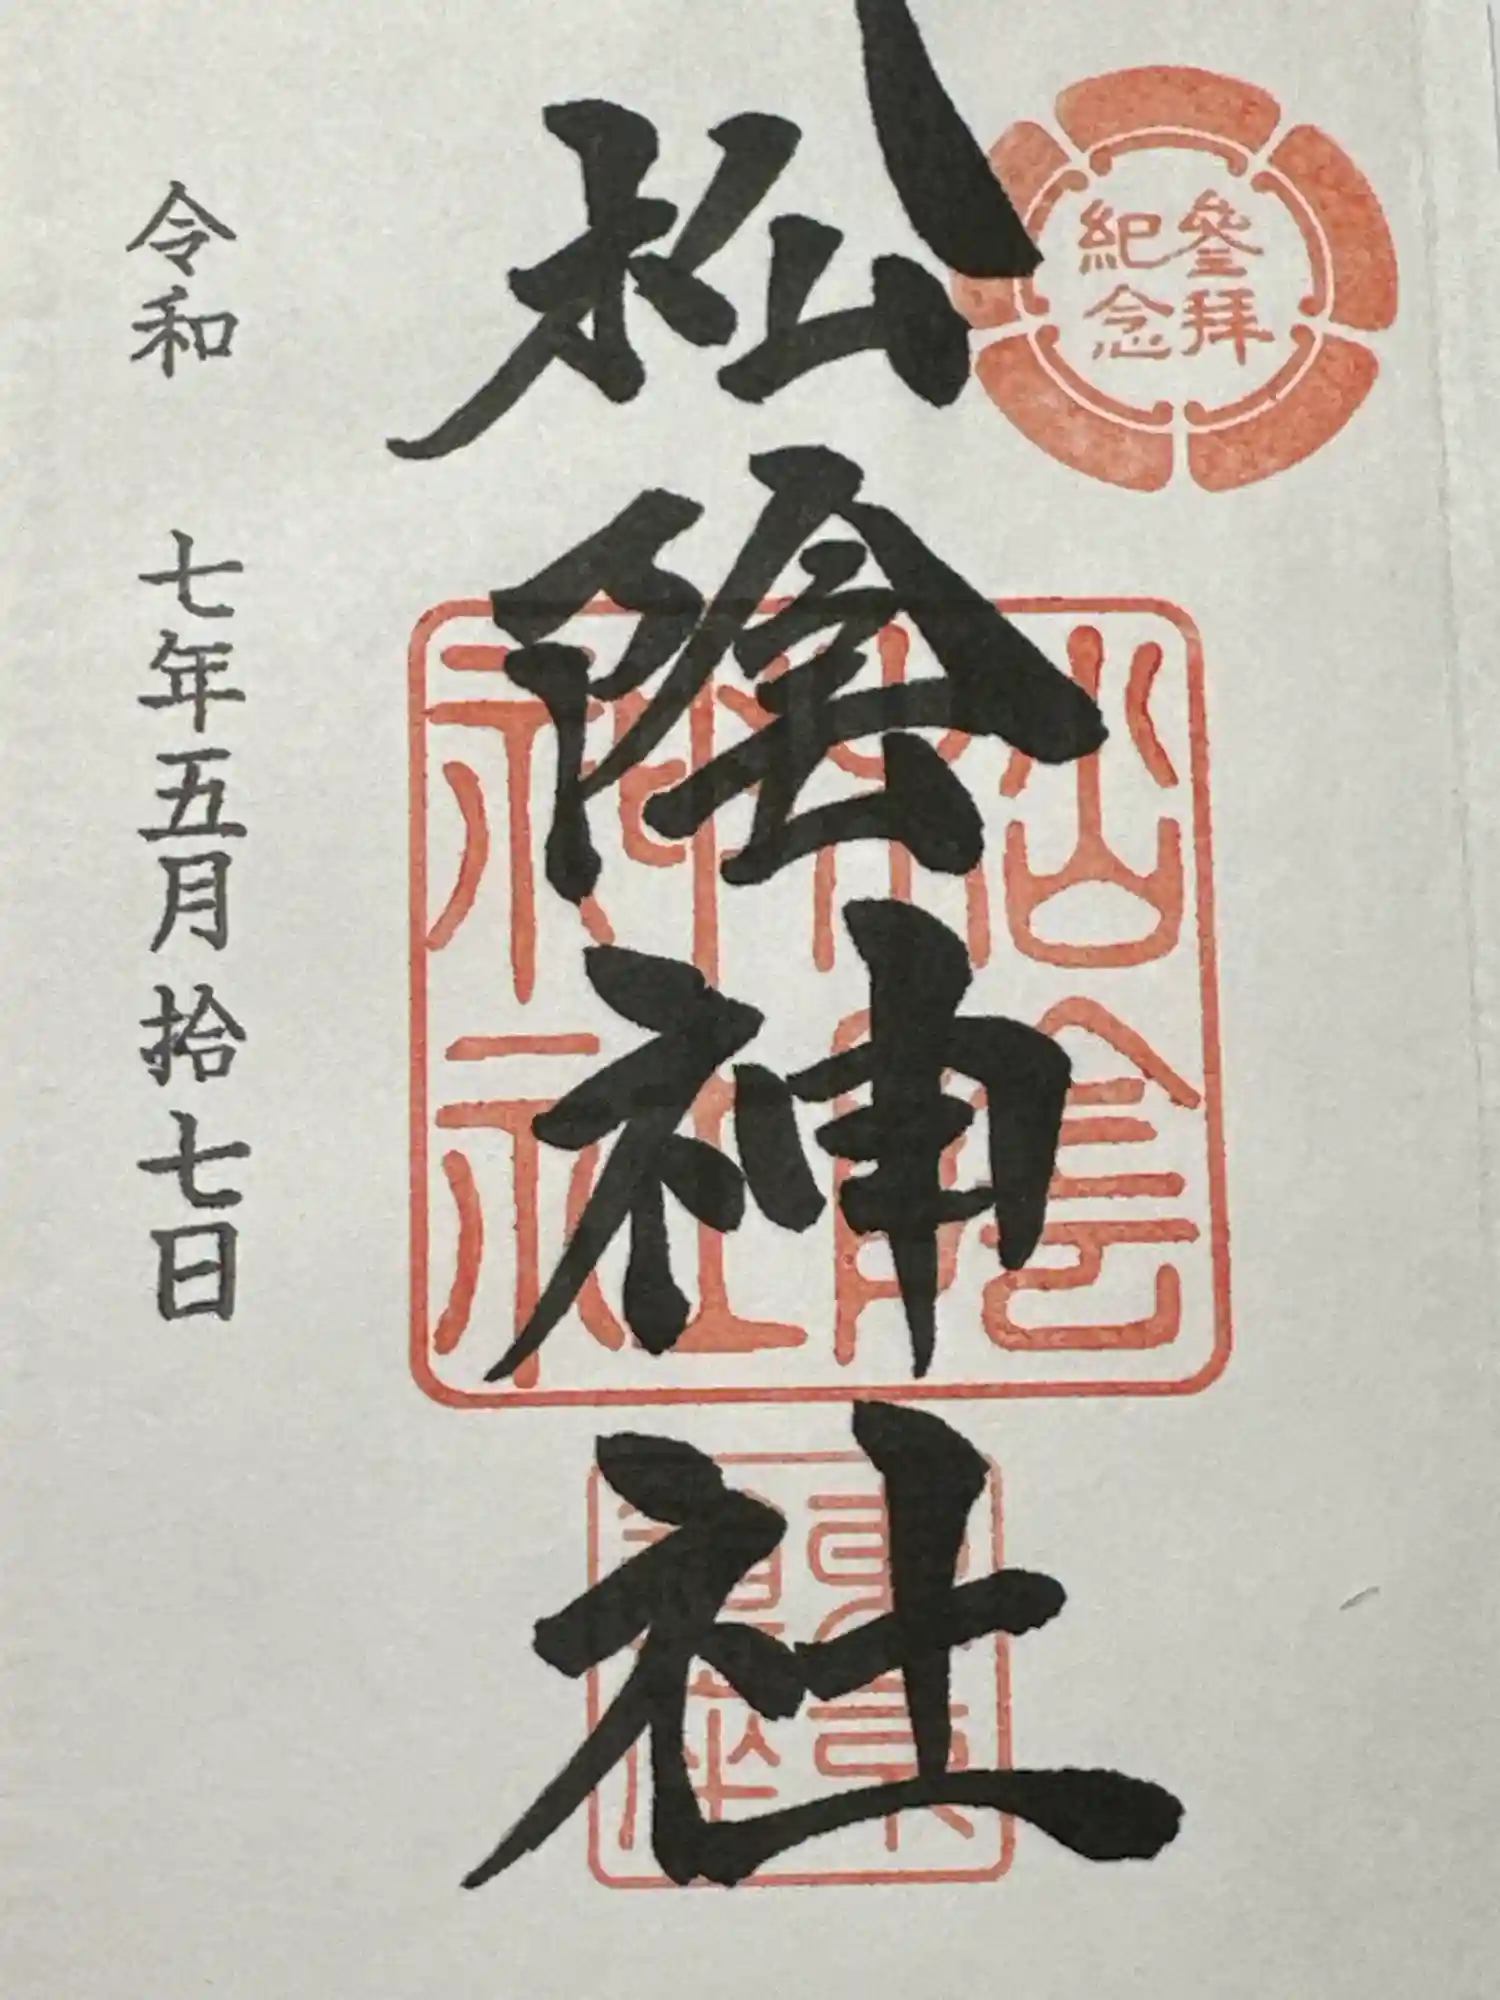 參拝
紀念
松陰神社
松陰
神社
令和 七年五月拾七日